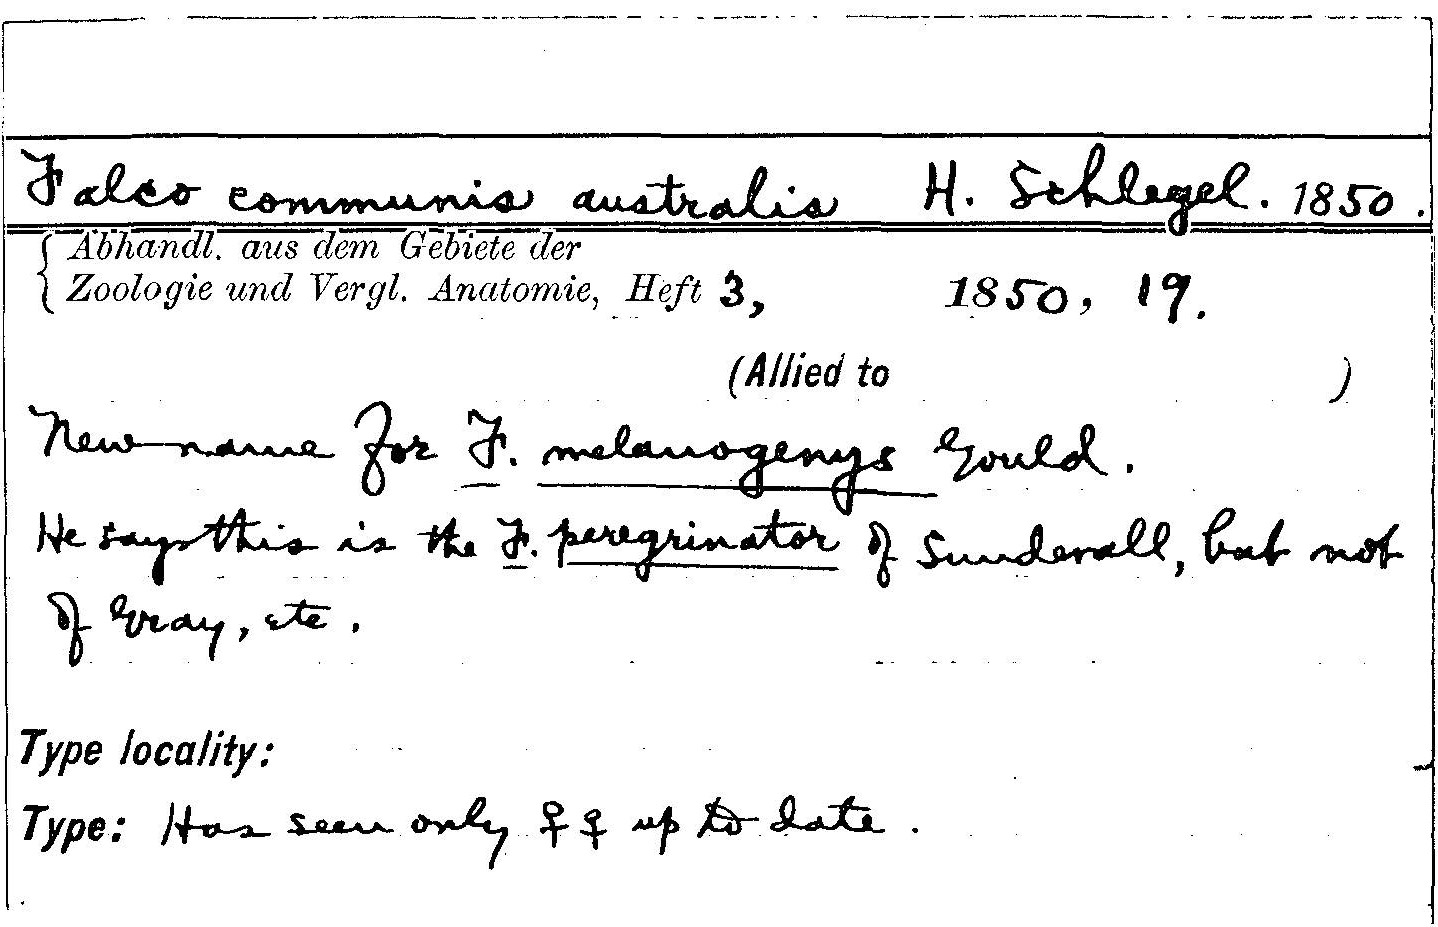 Falco communis australis H. Schlegel. 1850.
Abhandl. aus dem Gebiete der
Zoologie und Vergl. Anatomie, Heft 3, 1850, 19.
(Allied to )
New name for F. melanogenys Gould.
He says this is the F. peregrinator of Sundevall, but not
of Gray, etc.
Type locality:
Type: Has seen only ♀♀ up to date.